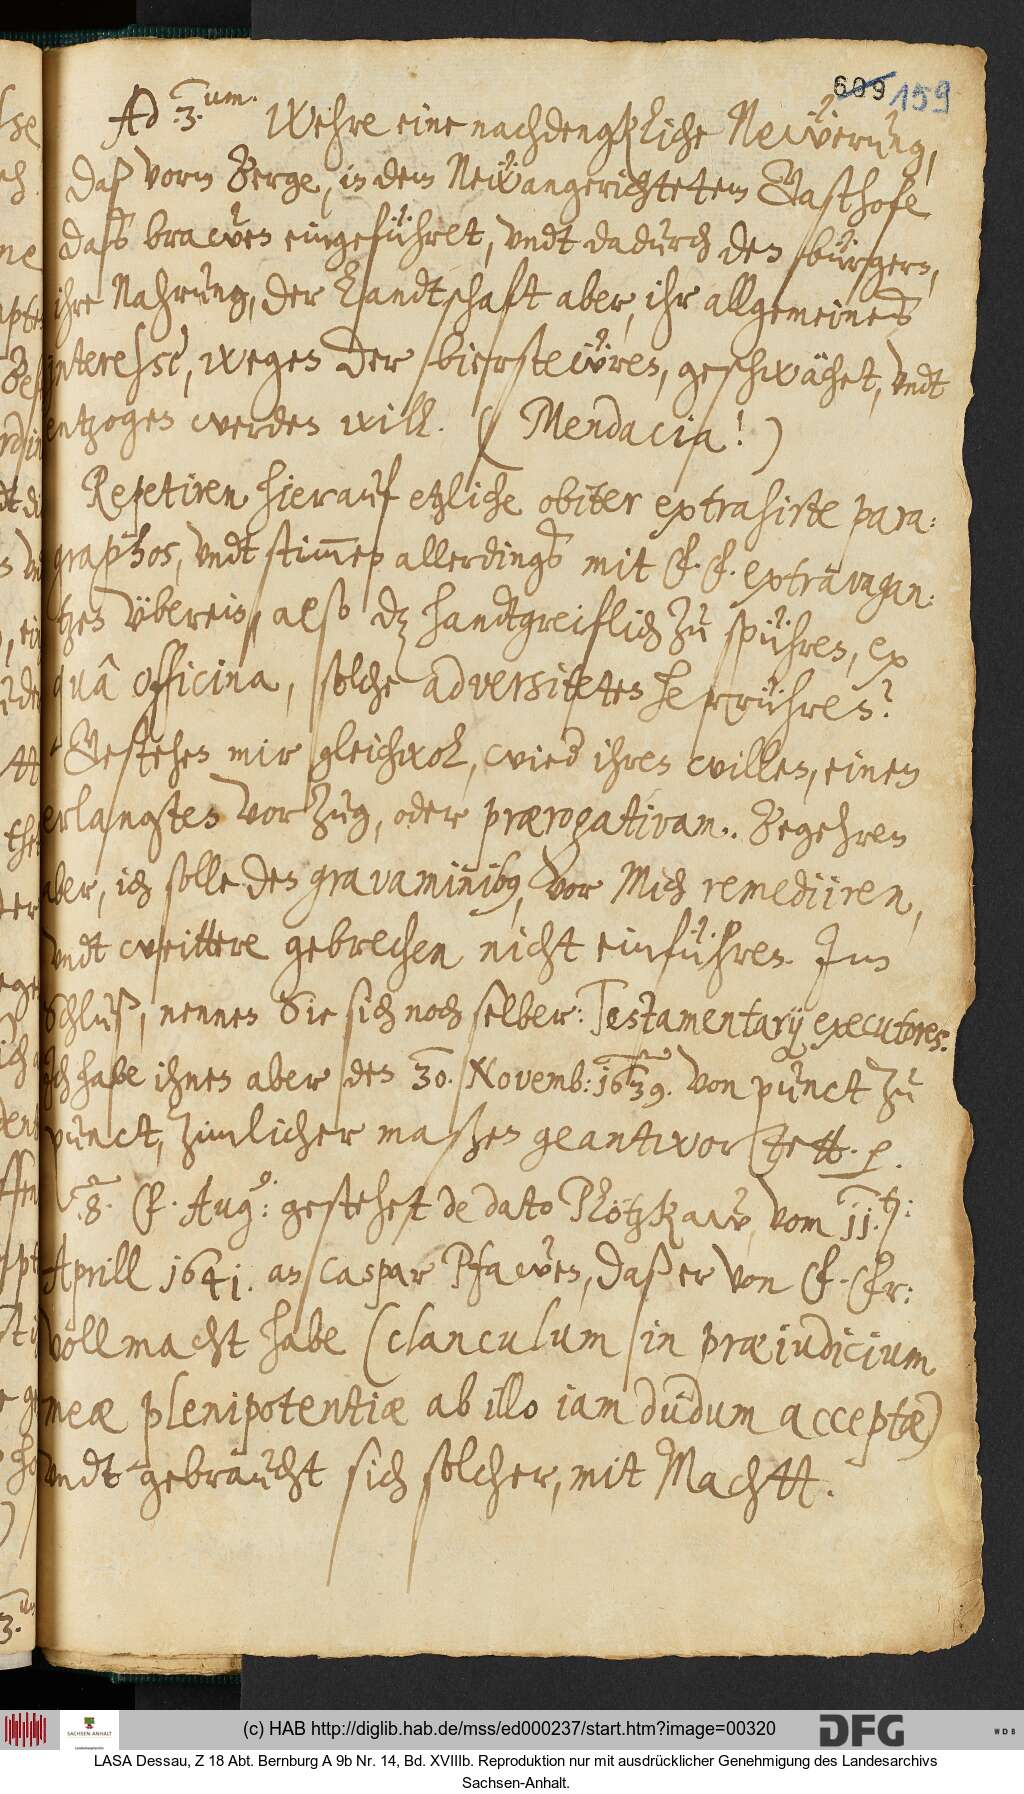 609 159
Ad .3.um. Wehre eine nachdengkliche Newerung,
daß vorm Berge, in dem New angerichtetem Gasthofe
daß brawen eingeführet, undt dadurch den bürgern,
ihre Nahrung, der Landtschaft aber, ihr allgemeines
interesse, wegen der biersteẅren, geschwächet, undt
entzogen werden will. (Mendacia!)
Repetiren hierauf etzliche obiter extrahirte para:
graphos, undt stim̅en allerdings mit F. F. extravagan:
tzen überein, also dz handtgreiflich zu spühren, ex
quâ officina, solche adversiteten herrühren?
Gestehen mir gleichwol, wied ihren willen, einen
erlangten vorzug, oder prærogativam. Begehren
aber, ich solle den gravaminib9, vor Mich remediiren,
undt weittere gebrechen nicht einführen. Im
Schluß, nennen Sie sich noch selber: Testamentarij executores.
Ich habe ihnen aber den 30. Novemb: 1639. von punct zu
punct, zimlicher maßen geantwortett. p.
.8. F. Aug: gestehet de dato Plötzkaw, vom 11. t:
Aprill 1641. an Caspar Pfawen, daß er von F. Chr:
vollmacht habe (clanculum in præiudicium
meæ plenipotentiæ ab illo iam dudum acceptæ)
undt gebraucht sich solcher, mit Machtt.
(c) HAB http://diglib.hab.de/mss/ed000237/start.htm?image=00320
SACHSEN-ANHALT
DFG
WDB
LASA Dessau, Z 18 Abt. Bernburg A 9b Nr. 14, Bd. XVIIIb. Reproduktion nur mit ausdrücklicher Genehmigung des Landesarchivs
Sachsen-Anhalt.